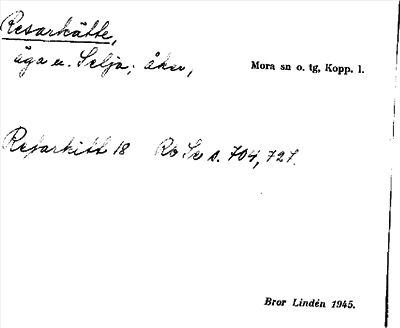 Resarkätte,
äga u. Selja; åker,
Mora sn o. tg, Kopp. l.
Resarkitt 18 Rb Se s. 704, 727.
Bror Lindén 1945.